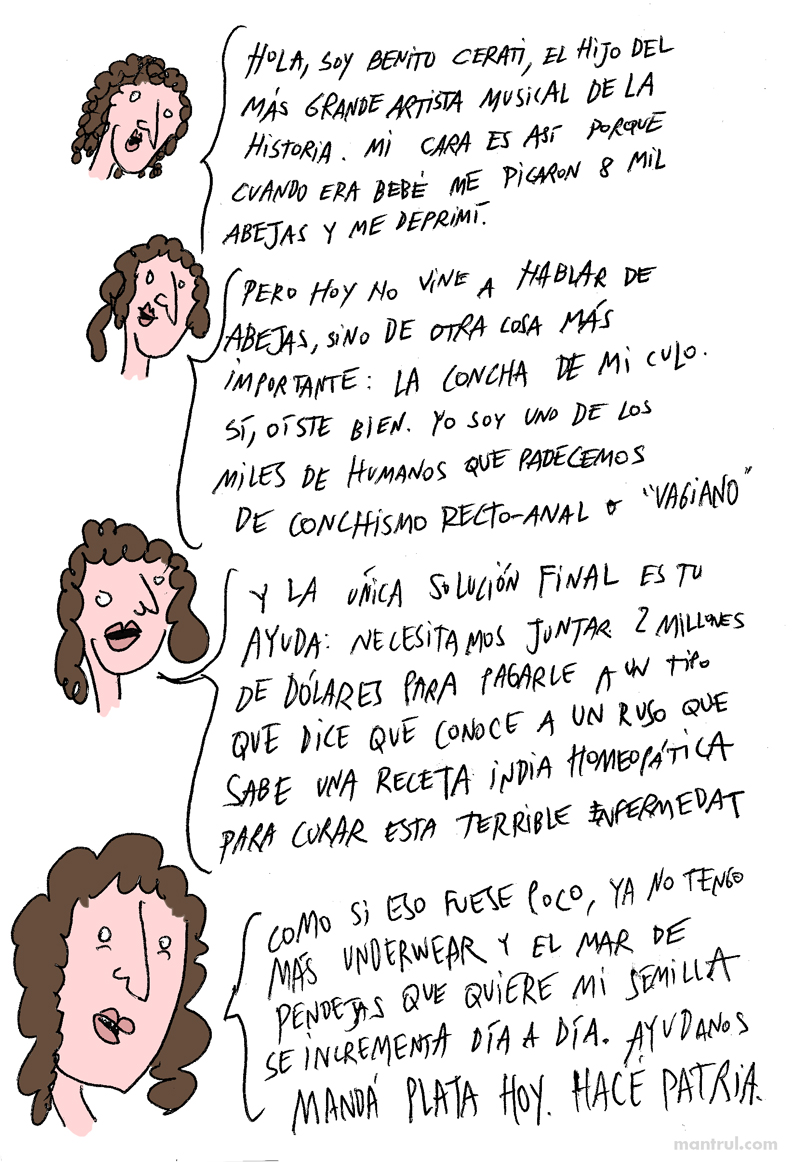 HOLA, SOY BENITO CERATI, EL HIJO DEL
MÁS GRANDE ARTISTA MUSICAL DE LA
HISTORIA. MI CARA ES ASÍ PORQUE
CUANDO ERA BEBÉ ME PICARON 8 MIL
ABEJAS Y ME DEPRIMÍ.
PERO HOY NO VINE A HABLAR DE
ABEJAS, SINO DE OTRA COSA MÁS
IMPORTANTE: LA CONCHA DE MI CULO.
SÍ, OÍSTE BIEN. YO SOY UNO DE LOS
MILES DE HUMANOS QUE PADECEMOS
DE CONCHISMO RECTO-ANAL O "VAGIANO"
Y LA UÑICA SOLUCIÓN FINAL ES TU
AYUDA: NECESITAMOS JUNTAR 2 MILLONES
DE DÓLARES PARA PAGARLE A UN TIPO
QUE DICE QUE CONOCE A UN RUSO QUE
SABE UNA RECETA INDIA HOMEOPÁTICA
PARA CURAR ESTA TERRIBLE ENFERMEDAT
COMO SI ESO FUESE POCO, YA NO TENGO
MÁS UNDERWEAR Y EL MAR DE
PENDEJAS QUE QUIERE MI SEMILLA
SE INCREMENTA DÍA A DÍA. AYUDANOS
MANDÁ PLATA HOY. HACÉ PATRIA.
mantrul.com